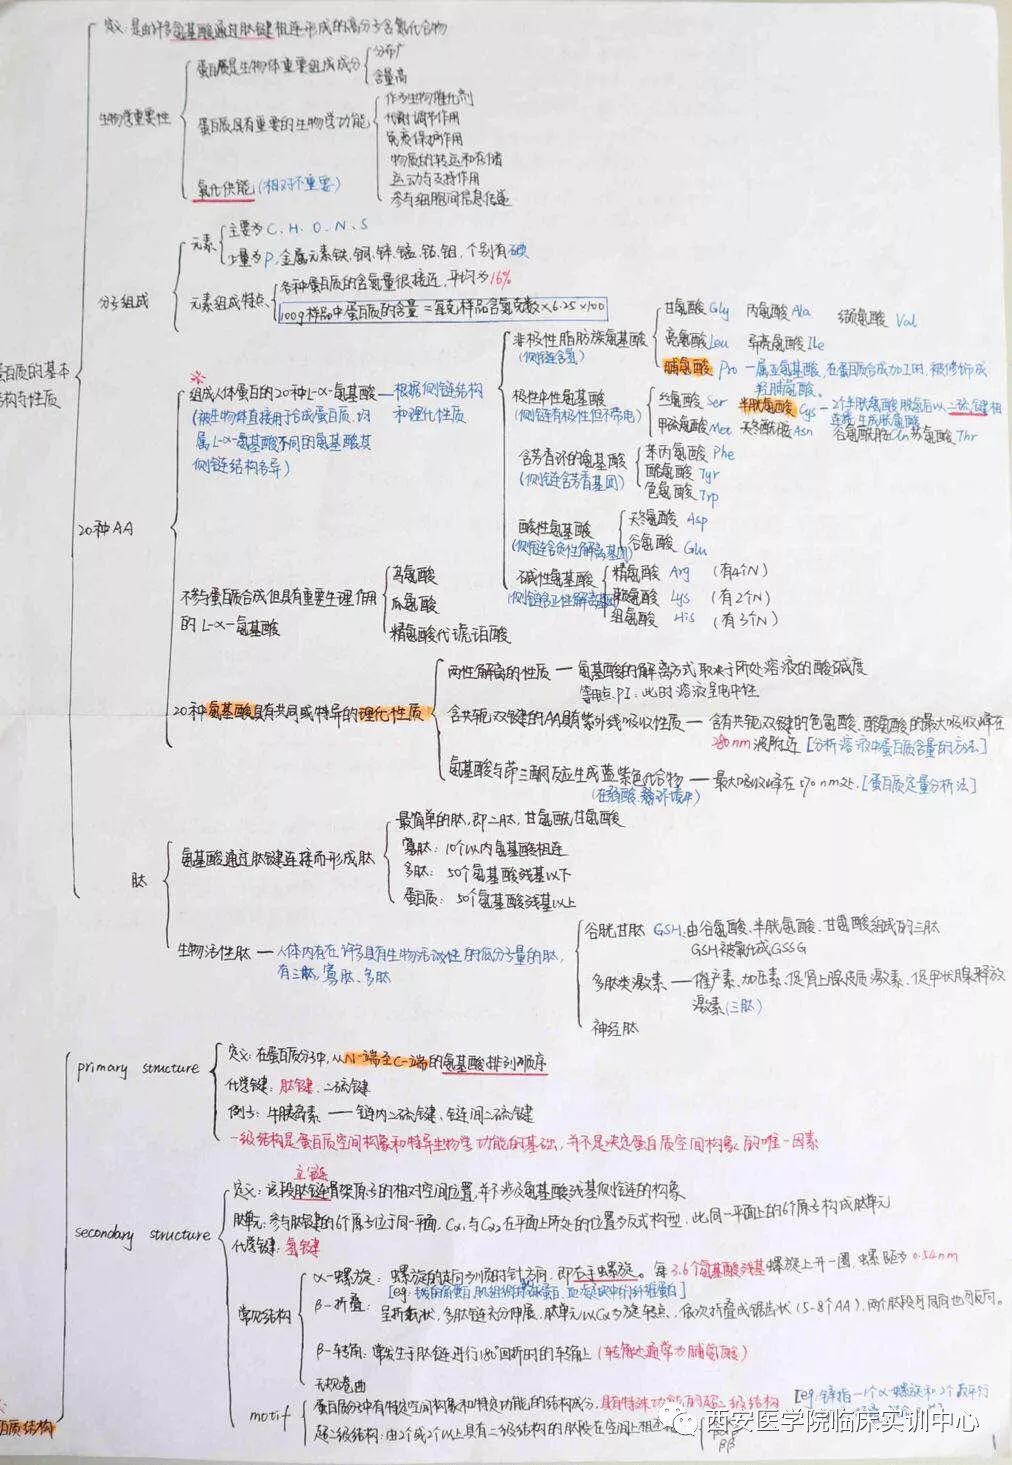 定义：是由许多氨基酸通过肽键相连形成的高分子含氮化合物
生物学重要性
蛋白质是生物体重要组成成分
分布广
含量高
蛋白质具有重要的生物学功能
作为生物催化剂
代谢调节作用
免疫保护作用
物质的转运和存储
运动与支持作用
参与细胞间信息传递
氧化供能（相对不重要）
分子组成
元素
主要为C、H、O、N、S
少量为P，金属元素铁、铜、锌、锰、钴、钼，个别有碘
元素组成特点
各种蛋白质的含氮量很接近，平均为16%
100g样品中蛋白质的含量=每克样品含氮克数×6.25×100
蛋白质的基本
结构特性质
20种AA
组成人体蛋白的20种L-α-氨基酸
（被生物体直接用于合成蛋白质，均
属L-α-氨基酸不同的氨基酸其
侧链结构各异）
根据侧链结构
和理化性质
非极性脂肪族氨基酸
（侧链含氢）
甘氨酸 Gly 丙氨酸 Ala 缬氨酸 Val
亮氨酸 Leu 异亮氨酸 Ile
脯氨酸 Pro —属亚氨基酸，在蛋白质合成加工时，被修饰成
羟脯氨酸。
极性中性氨基酸
（侧链有极性但不带电）
丝氨酸 Ser 半胱氨酸 Cys —2个半胱氨酸脱氢后以二硫键相
连接生成胱氨酸
甲硫氨酸 Met 天冬酰胺 Asn 谷氨酰胺 Gln 苏氨酸 Thr
含芳香环的氨基酸
（侧链含芳香基团）
苯丙氨酸 Phe
酪氨酸 Tyr
色氨酸 Trp
酸性氨基酸
（侧链含负性解离基团）
天冬氨酸 Asp
谷氨酸 Glu
碱性氨基酸
（侧链含正性解离基团）
精氨酸 Arg （有4个N）
赖氨酸 Lys （有2个N）
组氨酸 His （有3个N）
不参与蛋白质合成但具有重要生理作用
的L-α-氨基酸
鸟氨酸
瓜氨酸
精氨酸代琥珀酸
20种氨基酸具有共同或特异的理化性质
两性解离的性质 — 氨基酸的解离方式取决于所处溶液的酸碱度
等电点PI：此时溶液呈电中性
含共轭双键的AA具有紫外线吸收性质 — 含有共轭双键的色氨酸、酪氨酸的最大吸收峰在
280nm波附近［分析溶液中蛋白质含量的方法］
氨基酸与茚三酮反应生成蓝紫色化合物 — 最大吸收峰在570nm处，［蛋白质定量分析法］
肽
氨基酸通过肽键连接而形成肽
最简单的肽，即二肽，甘氨酰甘氨酸
寡肽：10个以内氨基酸相连
多肽：50个氨基酸残基以下
蛋白质：50个氨基酸残基以上
生物活性肽 — 人体内存在许多具有生物活性的低分子量的肽，
有三肽，寡肽、多肽
谷胱甘肽 GSH、由谷氨酸、半胱氨酸、甘氨酸组成的三肽
GSH被氧化成GSSG
多肽类激素 — 催产素、加压素、促肾上腺皮质激素、促甲状腺释放
激素（三肽）
神经肽
primary structure
定义：在蛋白质分子中，从N-端至C-端的氨基酸排列顺序
化学键：肽键、二硫键
例子：牛胰岛素 — 链内二硫键、链间二硫键
一级结构是蛋白质空间构象和特异生物学功能的基础，并不是决定蛋白质空间构象的唯一因素
secondary structure
主链
定义：该段肽链骨架原子的相对空间位置，并不涉及氨基酸残基侧链的构象
肽单元：参与肽键的6个原子位于同一平面，Cα1与Cα2在平面上所处的位置为反式构型，此同一平面上的6个原子构成肽单元
化学键：氢键
常见结构
α-螺旋：螺旋的走向为顺时针方向，即右手螺旋。每3.6个氨基酸残基螺旋上升一圈，螺距为0.54nm
β-折叠：呈折纸状，多肽链充分伸展，肽单元以Cα为旋转点，依次折叠成锯齿状（5-8个AA），两个肽段可同向也可反向。
β-转角：常发生于肽链进行180°回折时的转角上（转角处通常为脯氨酸）
无规卷曲
质结构
motif
蛋白质分子中有特定空间构象和特定功能的结构成分，具有特殊功能的超二级结构
［eg：锌指—1个α-螺旋和2个反平行
超二级结构：由2个或2个以上具有二级结构的肽段在空间上相
ββ
西安医学院临床实训中心
1